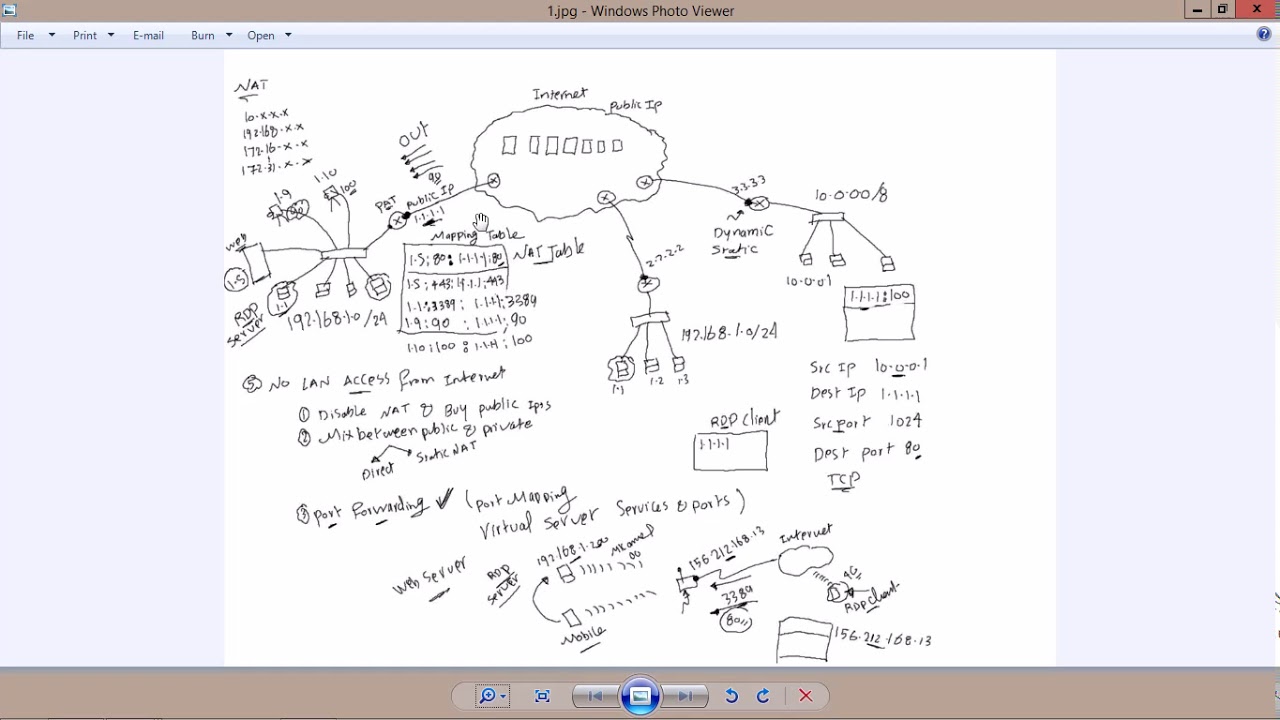 1.jpg - Windows Photo Viewer
File Print E-mail Burn Open
NAT
10.x.x.x
192.168.x.x
172.16.x.x
172.31.x.x
Internet
Public Ip
OUT
90
1.9
90
1.10
100
PAT
Public Ip
1.1.1.1
web
1.5
RDP
Server
1.1
192.168.1.0/24
Mapping Table
NAT Table
1.5:80: 1.1.1.1:80
1.5:443:1.1.1.1:443
1.1:3389: 1.1.1.1:3389
1.9:90 : 1.1.1.1:90
1.10:100 : 1.1.1.1:100
2.2.2.2
192.168.1.0/24
1.1
1.2
1.3
3.3.3.3
Dynamic
Static
10.0.0.0/8
10.0.0.1
1.1.1.1:100
Src Ip 10.0.0.1
Dest Ip 1.1.1.1
Src port 1024
Dest port 80
TCP
RDP Client
1.1.1.1
⑤ No LAN Access from Internet
① Disable NAT & Buy public Ips
② Mix between public & private
Direct
Static NAT
③ Port Forwarding ✓ (Port Mapping
Virtual Server Services & ports)
Web Server
RDP
Server
192.168.1.200
Mobile
156.212.168.13
3389
80
Internet
4G
RDP Client
156.212.168.13